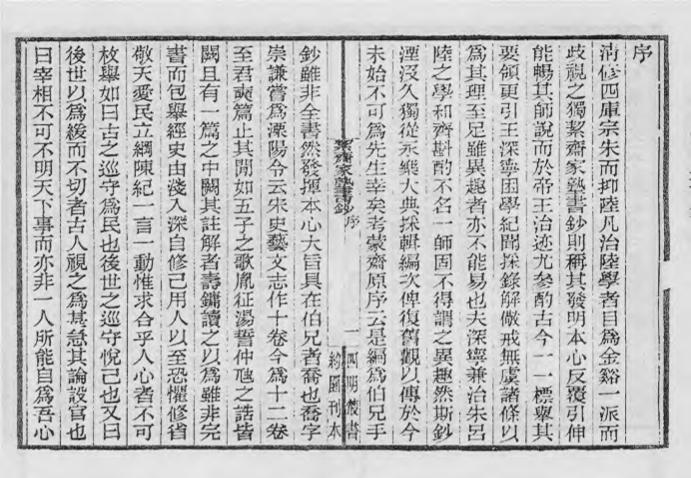 序
清修四庫宗朱而抑陸凡治陸學者目爲金谿一派而
歧視之獨絜齋家塾書鈔則稱其發明本心反覆引伸
能暢其師說而於帝王治迹尤參酌古今一一標舉其
要領更引王深寧困學紀聞採錄解儆戒無虞諸條以
爲其理至足雖異趣者亦不能易也夫深寧兼治朱呂
陸之學和齋斟酌不名一師固不得謂之異趣然斯鈔
湮沒久獨從永樂大典採輯編次俾復舊觀以傳於今
未始不可爲先生幸矣考蒙齋原序云是編爲伯兄手
絜齋家塾書鈔 序 一 四明叢書
約園刊本
鈔雖非全書然發揮本心大旨具在伯兄者喬也喬字
崇謙嘗爲溧陽令云宋史藝文志作十卷今爲十二卷
至君奭篇止其閒如五子之歌胤征湯誓仲虺之誥皆
闕且有一篇之中闕其註解者壽鏞讀之以爲雖非完
書而包舉經史由淺入深自修己用人以至恐懼修省
敬天愛民立綱陳紀一言一動惟求合乎人心者不可
枚舉如曰古之巡守爲民也後世之巡守悅己也又曰
後世以爲緩而不切者古人視之爲甚急其論設官也
曰宰相不可不明天下事而亦非一人所能自爲吾心